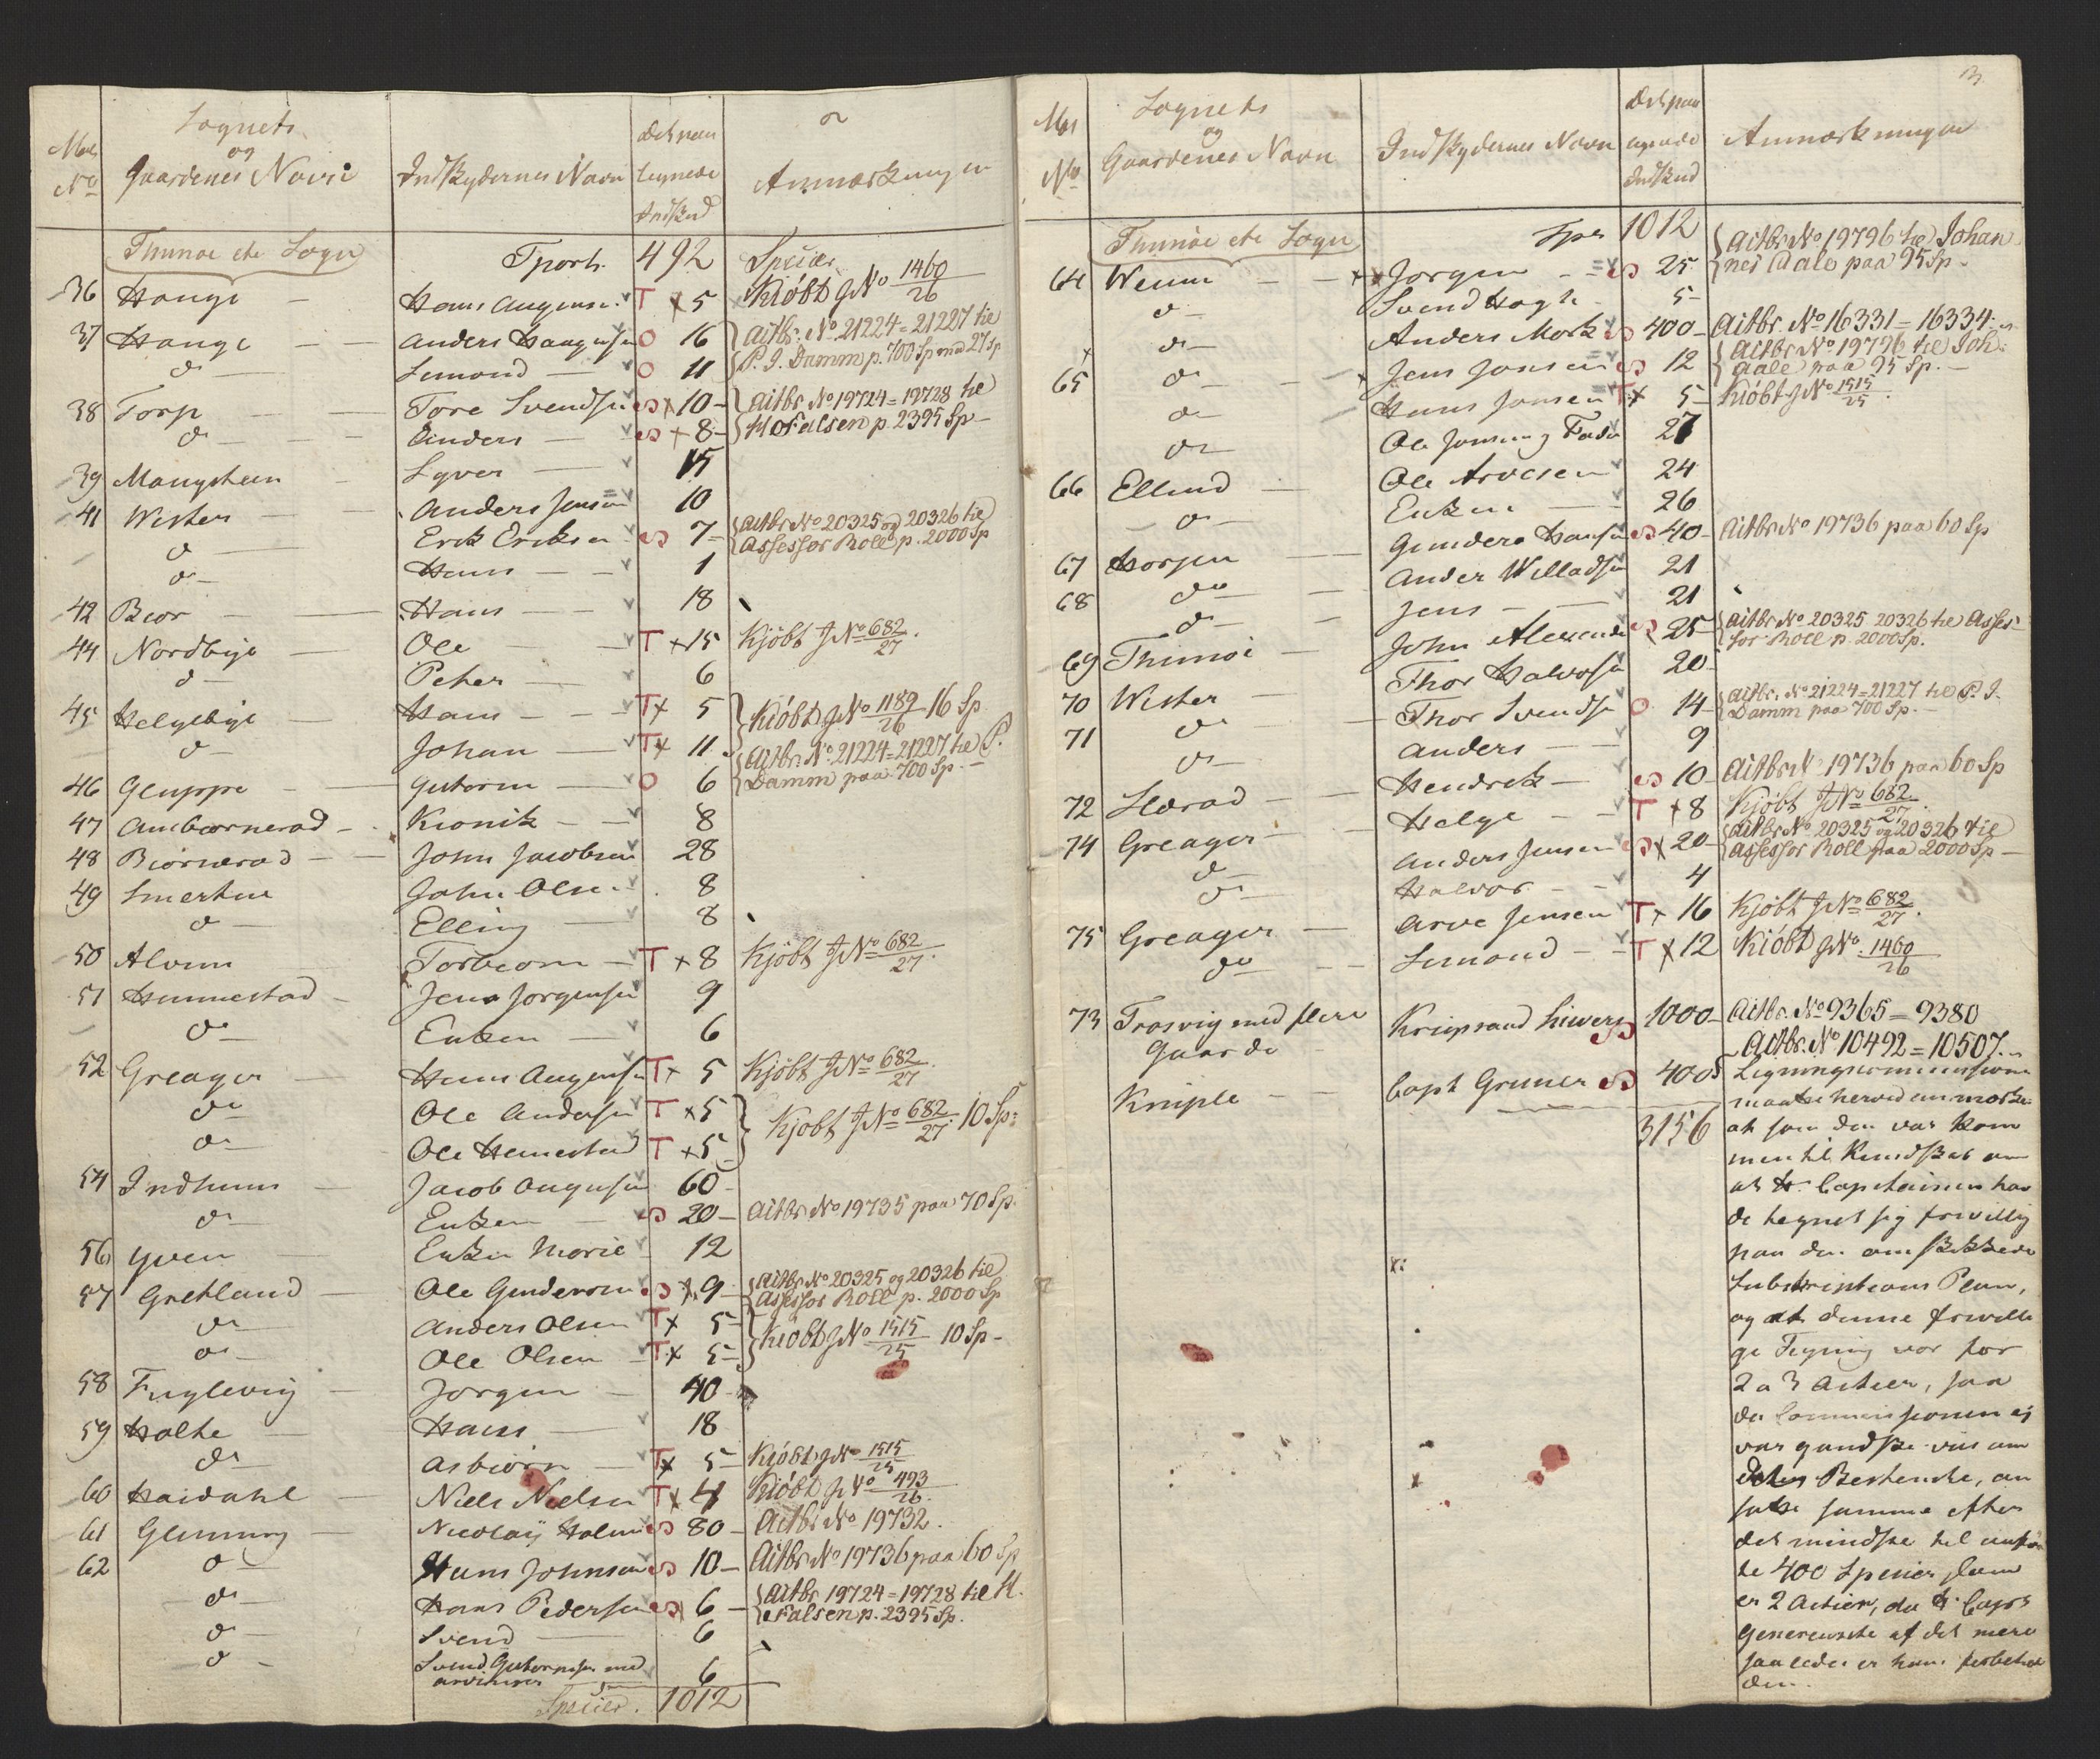 Sognets
og
Gaardenes Navn
No
Indskydernes Navn
Indskud
Anmærkninger
Thunøe etc Sogn
Tports. 492 Specier
36 Hauge Hans Augensen T x 5 Kiøbt JNo 1460/26
37 Hauge Anders Haagensen O 16 Actbr. No. 21224=21227 til
do Simond O 11 P. J. Damm p. 700 Sp med 27 Sp
38 Torp Tore Svendsen x 10 Actbr No 19724=19728 til
do Anders x 8 H Falsen p. 2395 Sp
39 Mangsteen Syver 15
41 Wister Anders Jensen 10
do Erik Eriksen 7 Actbr No 20325 og 20326 til
Assessor Roll p. 2000 Sp
do Hans 1
42 Beør Hans 18
44 Nordbye Ole T x 15 Kjøbt JNo 682/27.
do Peter 6
45 Helgebye Hans T x 5 Kiøbt JNo 1189/26 16 Sp
do Johan T x 11
46 Gluppe Gutorm O 6 Actbr. No. 21224=21227 til P.
Damm paa 700 Sp.
47 Ambørnerød Kronik 8
48 Biørnerød John Jacobsen 28
49 Smertue John Olsen 8
do Elling 8
50 Alvim Torbiørn T x 8 Kjøbt JNo 682/27.
51 Hunnestad Jens Jørgensen 9
do Enken 6
52 Greager Hans Augensen T x 5 Kjøbt JNo 682/27.
do Ole Andersen T x 5 Kjøbt JNo 682/27. 10 Sp:
do Ole Hunestad T x 5
54 Indhuus Jacob Augensen 60
do Enken 20 Actbr No 19735 paa 70 Sp.
56 Yven Enken Marie 12
57 Gretland Ole Gundersen x 9 Actbr No 20325 og 20326 til
Assessor Roll p. 2000 Sp
do Anders Olsen T x 5 Kiøbt JNo 1515/25 10 Sp
do Ole Olsen T x 5
58 Fuglevig Jørgen 40
59 Holte Hans 18
do Asbiørn T x 5 Kiøbt JNo 1515/25
60 Haidahl Niels Nielsen T x 4 Kiøbt JNo 493/26.
61 Glemmen Nicolaij Holm 80 Actbr No 19732.
62 do Hans Johnsen 10 Actbr No 19736 paa 60 Sp
do Hans Pedersen 6 Actbr 19724=19728 til H.
Falsen p. 2395 Sp.
do Svend 6
do Svend Gutormsen med 6
Specier. 1012
3
Sognets
og
Gaardenes Navn
No
Indskydernes Navn
Indskud
Anmærkninger
Thunøe etc Sogn
Spr 1012
64 Weum Jørgen 25 Actbr No 19796 til Johan
nes Aale paa 95 Sp
do Svend Hagh 5
do Anders Mork 400 Actbr. No 16331=16334.
65 do Jens Jansen 12 Actbr No 19796 til Joh:
Aale paa 95 Sp.
do Hans Jansen T x 5 Kiøbt JNo 1515/25.
do Ole Jansen 27
66 Ellund Ole Arvesen 24
do Enken 26
67 Horgen Gunder Hansen 40 Actbr No 19736 paa 60 Sp
68 do Ander Willadsen 21
do Jens 21
69 Thunøe John Alexander 25 Actbr No 20325 20326 til Asses-
sor Roll p. 2000 Sp.
70 Wister Thor Halvorsen 20
71 do Thor Svendsen O 14 Actbr. No 21224=21227 til P. J.
Damm paa 700 Sp.
do Anders 9
72 Slærød Hendrik 10 Actbr N 19736 paa 60 Sp
74 Greager Helge T x 8 Kjøbt JNo 682/27.
do Anders Jensen x 20 Actbr No 20325 og 20326 til
Assessor Roll paa 2000 Sp
do Halvor 4
75 Greager Arve Jensen T x 16 Kjøbt JNo 682/27.
do Simond T x 12 Kiøbt JNo. 1460/26
73 Trosvig med flere Kriigsraad Siwers 1000 Actbr. No 9365=9380
Gaarde Actbr. No 10492=10507.
Kniple Capt Gruner 400
3156
maatte herved anmærke
at som den var kom
men til Kundskab om
at Hr. Capitainen hav
de tegnet sig frivillig
paa den omskikkede
Subskriptions Plan,
og at denne frivilli
ge Tegning var for
2 a 3 Actier, saa
da Commissionen ej
var gandske vis om
dets Bestemte, an
satte samme efter
det mindste til anførte
400 Specier som
er 2 Actier, da Hr. Capts
Genereusite af det mere
saaledes er ham forbehol
den.